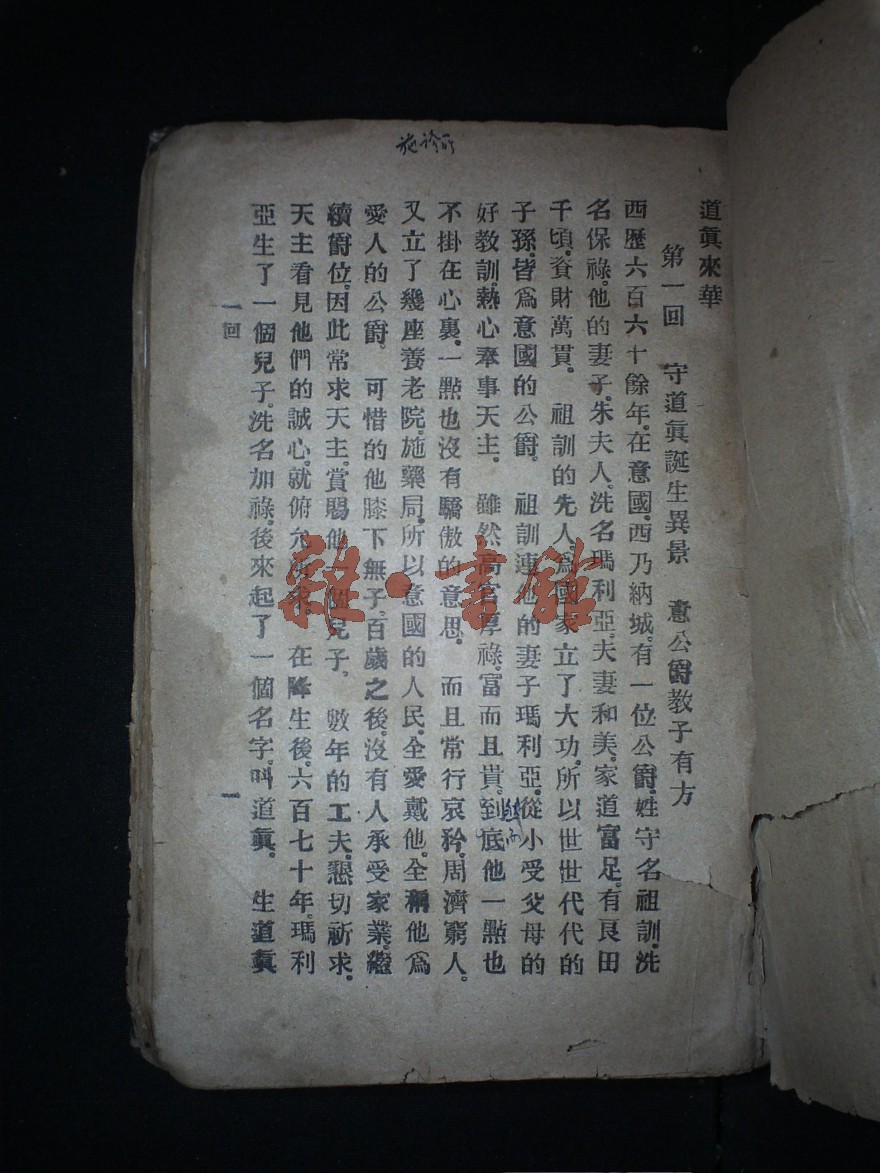 施診所
道眞來華
第一回　守道眞誕生異景　意公爵教子有方
西歷六百六十餘年。在意國。西乃納城。有一位公爵。姓守名祖訓。洗
名保祿。他的妻子。朱夫人。洗名瑪利亞。夫妻和美。家道富足。有良田
千頃。資財萬貫。祖訓的先人。爲國家立了大功。所以世世代代的
子孫。皆爲意國的公爵。祖訓連他的妻子瑪利亞。從小受父母的
好教訓。熱心奉事天主。雖然高官厚祿。富而且貴。到底他一點也
不掛在心裏。一點也沒有驕傲的意思。而且常行哀矜。周濟窮人。
又立了幾座養老院。施藥局。所以意國的人民。全愛戴他。全稱他爲
愛人的公爵。可惜的他膝下無子。百歲之後。沒有人承受家業。繼
續爵位。因此常求天主。賞賜他一個兒子。數年的工夫。懇切祈求。
天主看見他們的誠心。就俯允所求。在降生後。六百七十年。瑪利
亞生了一個兒子。洗名加祿。後來起了一個名字。叫道眞。生道眞
一回
一
雜·書館